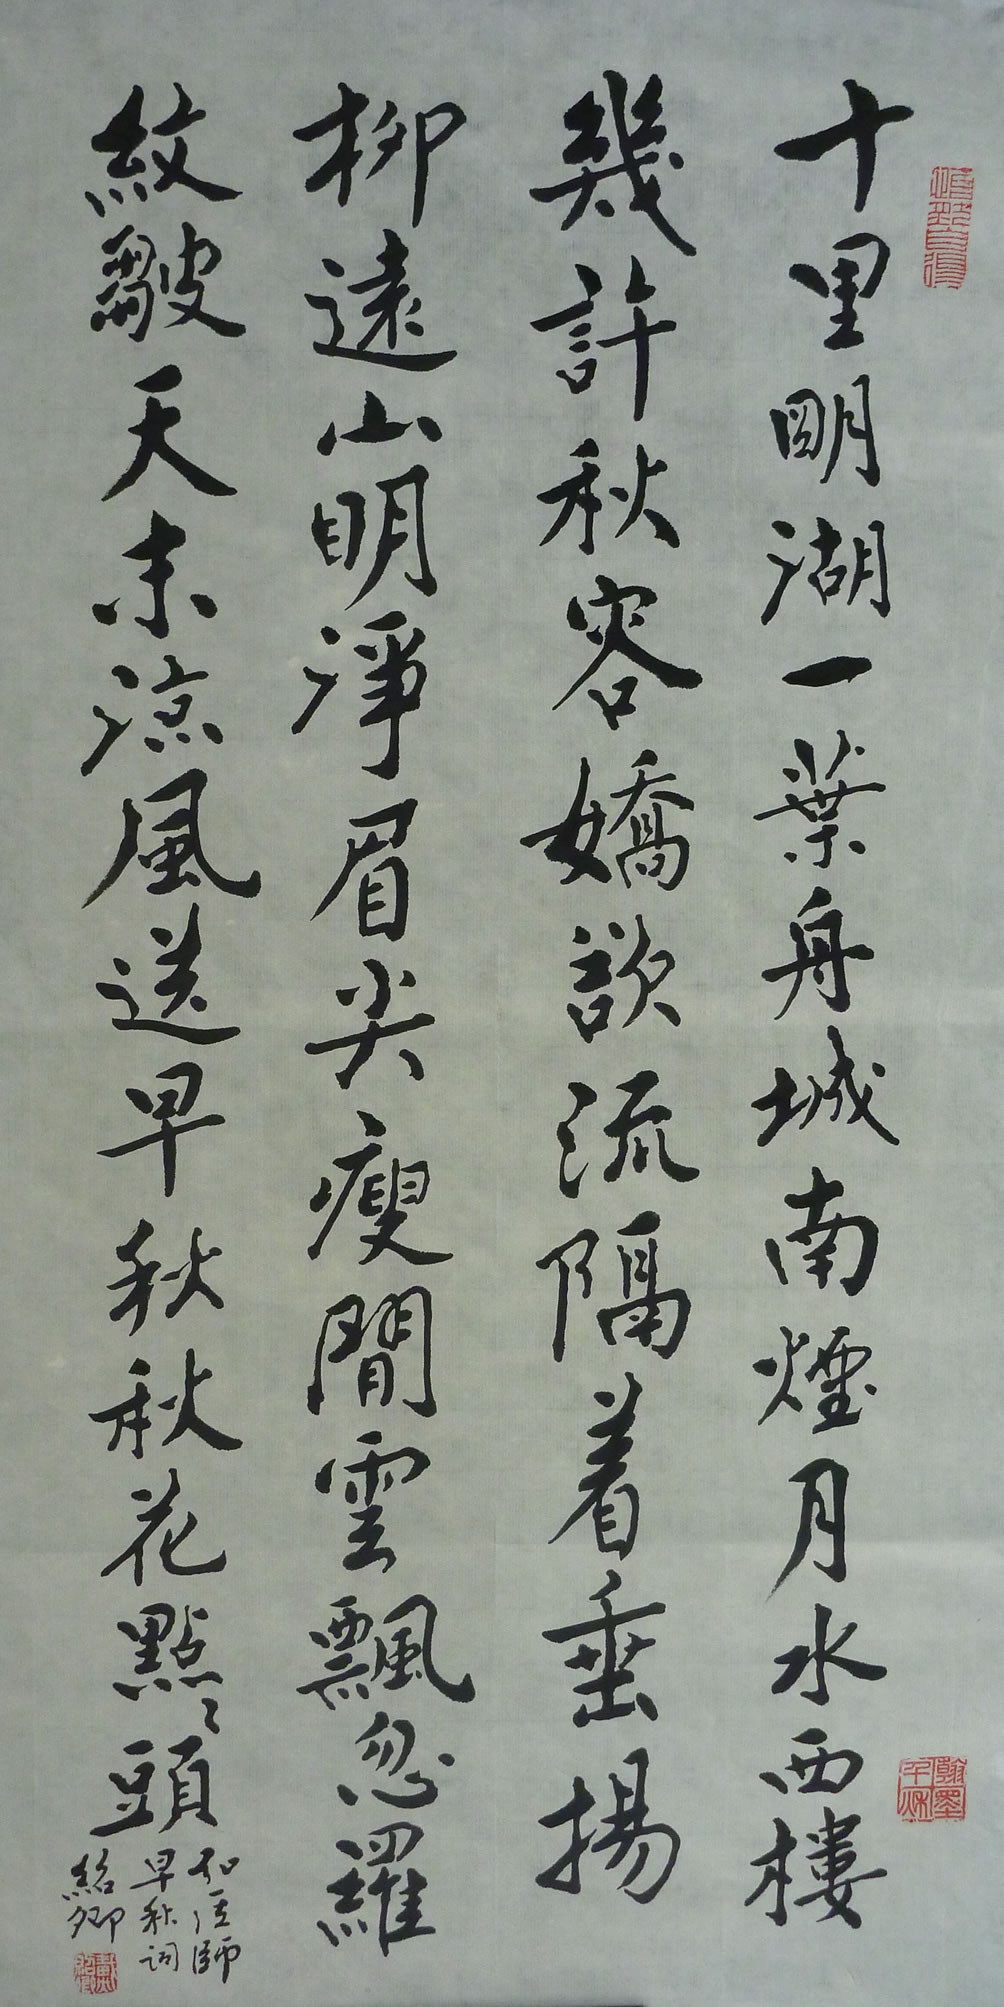 十里明湖一葉舟城南煙月水西樓
幾許秋容嬌欲流隔着垂揚
柳遠山明淨眉尖瘦閒雲飄忽羅
紋皺天末涼風送早秋秋花點々頭
弘一法師
早秋詞
紹卿
翰墨
千秋